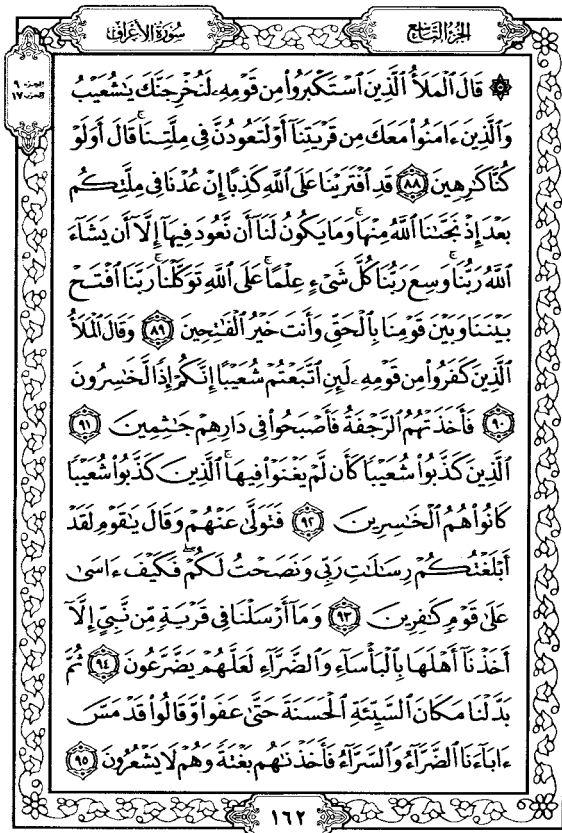 سُورَةُ الأَعْرَافِ
الجُزْءُ التَّاسِعُ
الجزء ٩
الحزب ١٧
۞ قَالَ ٱلْمَلَأُ ٱلَّذِينَ ٱسْتَكْبَرُوا۟ مِن قَوْمِهِۦ لَنُخْرِجَنَّكَ يَـٰشُعَيْبُ
وَٱلَّذِينَ ءَامَنُوا۟ مَعَكَ مِن قَرْيَتِنَآ أَوْ لَتَعُودُنَّ فِى مِلَّتِنَا ۚ قَالَ أَوَلَوْ
كُنَّا كَـٰرِهِينَ ٨٨ قَدِ ٱفْتَرَيْنَا عَلَى ٱللَّهِ كَذِبًا إِنْ عُدْنَا فِى مِلَّتِكُم
بَعْدَ إِذْ نَجَّىٰنَا ٱللَّهُ مِنْهَا ۚ وَمَا يَكُونُ لَنَآ أَن نَّعُودَ فِيهَآ إِلَّآ أَن يَشَآءَ
ٱللَّهُ رَبُّنَا ۚ وَسِعَ رَبُّنَا كُلَّ شَىْءٍ عِلْمًا ۚ عَلَى ٱللَّهِ تَوَكَّلْنَا ۚ رَبَّنَا ٱفْتَحْ
بَيْنَنَا وَبَيْنَ قَوْمِنَا بِٱلْحَقِّ وَأَنتَ خَيْرُ ٱلْفَـٰتِحِينَ ٨٩ وَقَالَ ٱلْمَلَأُ
ٱلَّذِينَ كَفَرُوا۟ مِن قَوْمِهِۦ لَئِنِ ٱتَّبَعْتُمْ شُعَيْبًا إِنَّكُمْ إِذًا لَّخَـٰسِرُونَ
٩٠ فَأَخَذَتْهُمُ ٱلرَّجْفَةُ فَأَصْبَحُوا۟ فِى دَارِهِمْ جَـٰثِمِينَ ٩١
ٱلَّذِينَ كَذَّبُوا۟ شُعَيْبًا كَأَن لَّمْ يَغْنَوْا۟ فِيهَا ۚ ٱلَّذِينَ كَذَّبُوا۟ شُعَيْبًا
كَانُوا۟ هُمُ ٱلْخَـٰسِرِينَ ٩٢ فَتَوَلَّىٰ عَنْهُمْ وَقَالَ يَـٰقَوْمِ لَقَدْ
أَبْلَغْتُكُمْ رِسَـٰلَـٰتِ رَبِّى وَنَصَحْتُ لَكُمْ ۖ فَكَيْفَ ءَاسَىٰ
عَلَىٰ قَوْمٍ كَـٰفِرِينَ ٩٣ وَمَآ أَرْسَلْنَا فِى قَرْيَةٍ مِّن نَّبِىٍّ إِلَّآ
أَخَذْنَآ أَهْلَهَا بِٱلْبَأْسَآءِ وَٱلضَّرَّآءِ لَعَلَّهُمْ يَضَّرَّعُونَ ٩٤ ثُمَّ
بَدَّلْنَا مَكَانَ ٱلسَّيِّئَةِ ٱلْحَسَنَةَ حَتَّىٰ عَفَوا۟ وَّقَالُوا۟ قَدْ مَسَّ
ءَابَآءَنَا ٱلضَّرَّآءُ وَٱلسَّرَّآءُ فَأَخَذْنَـٰهُم بَغْتَةً وَهُمْ لَا يَشْعُرُونَ ٩٥
١٦٢